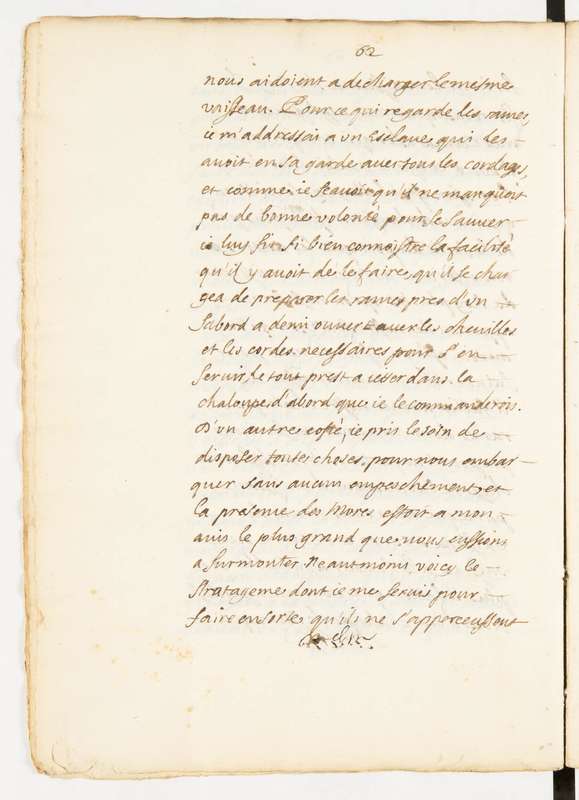 62
nous aidoient a decharger le mesme
vaisseau. Pour ce qui regarde les rames,
ie m'addressai a un Esclave qui les
avoit en sa garde avec tous les cordages,
et comme ie scavois qu'il ne manquoit
pas de bonne volonté pour se sauver
ie luy fis si bien connoistre la facilité
qu'il y avoit de le faire, qu'il se char
gea de preparer les rames pres d'un
sabord a demi ouvert avec les chevilles
et les cordes necessaires pour s'en
servir, le tout prest a ietter dans la
chaloupe d'abord que ie le commanderois.
D'un autre costé, ie pris le soin de
disposer toutes choses, pour nous embar
quer sans aucun empeschement, et
la presence des Mores estoit a mon
avis le plus grand que nous eussions
a surmonter. Neantmoins voicy le
stratageme dont ie me servis pour
faire en sorte qu'ils ne s'apperceussent